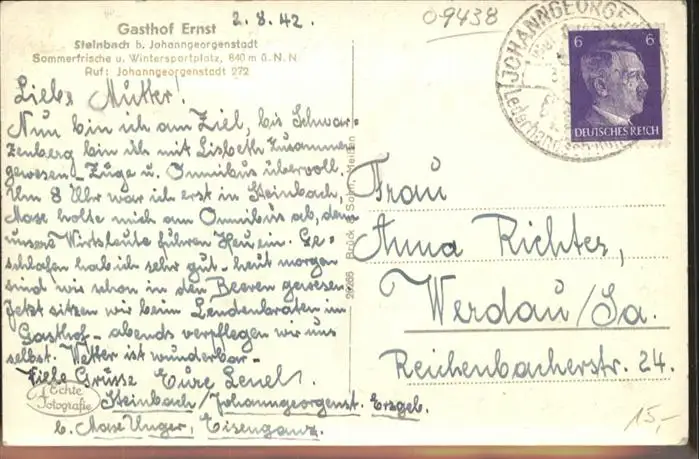 2.8.42.
09438
Gasthof Ernst
Steinbach b. Johanngeorgenstadt
Sommerfrische u. Wintersportplatz, 840 m ü. N. N
Ruf: Johanngeorgenstadt 272
JOHANNGEORGE
6 6
DEUTSCHES REICH
Liebe Mutter!
Nun bin ich am Ziel, bis Schwar-
zenberg bin ich mit Lisbeth zusammen
gewesen - Züge u. Omnibus übervoll.
Um 8 Uhr war ich erst in Steinbach,
Mase holte mich am Omnibus ab, denn
unsere Wirtsleute führen Heu ein. Ge-
schlafen hab ich sehr gut - heut morgen
sind wir schon in den Beeren gewesen
Jetzt sitzen wir beim Lendenbraten im
Gasthof - abends verpflegen wir uns
selbst. Wetter ist wunderbar -
Viele Grüsse Eure Lenel.
Steinbach/Johanngeorgenst. Erzgeb.
b. Mase Unger, Eisenganz.
Echte
Fotografie
Brück & Sohn, Meißen
Frau
Anna Richter,
Werdau/Sa.
Reichenbacherstr. 24.
15,-